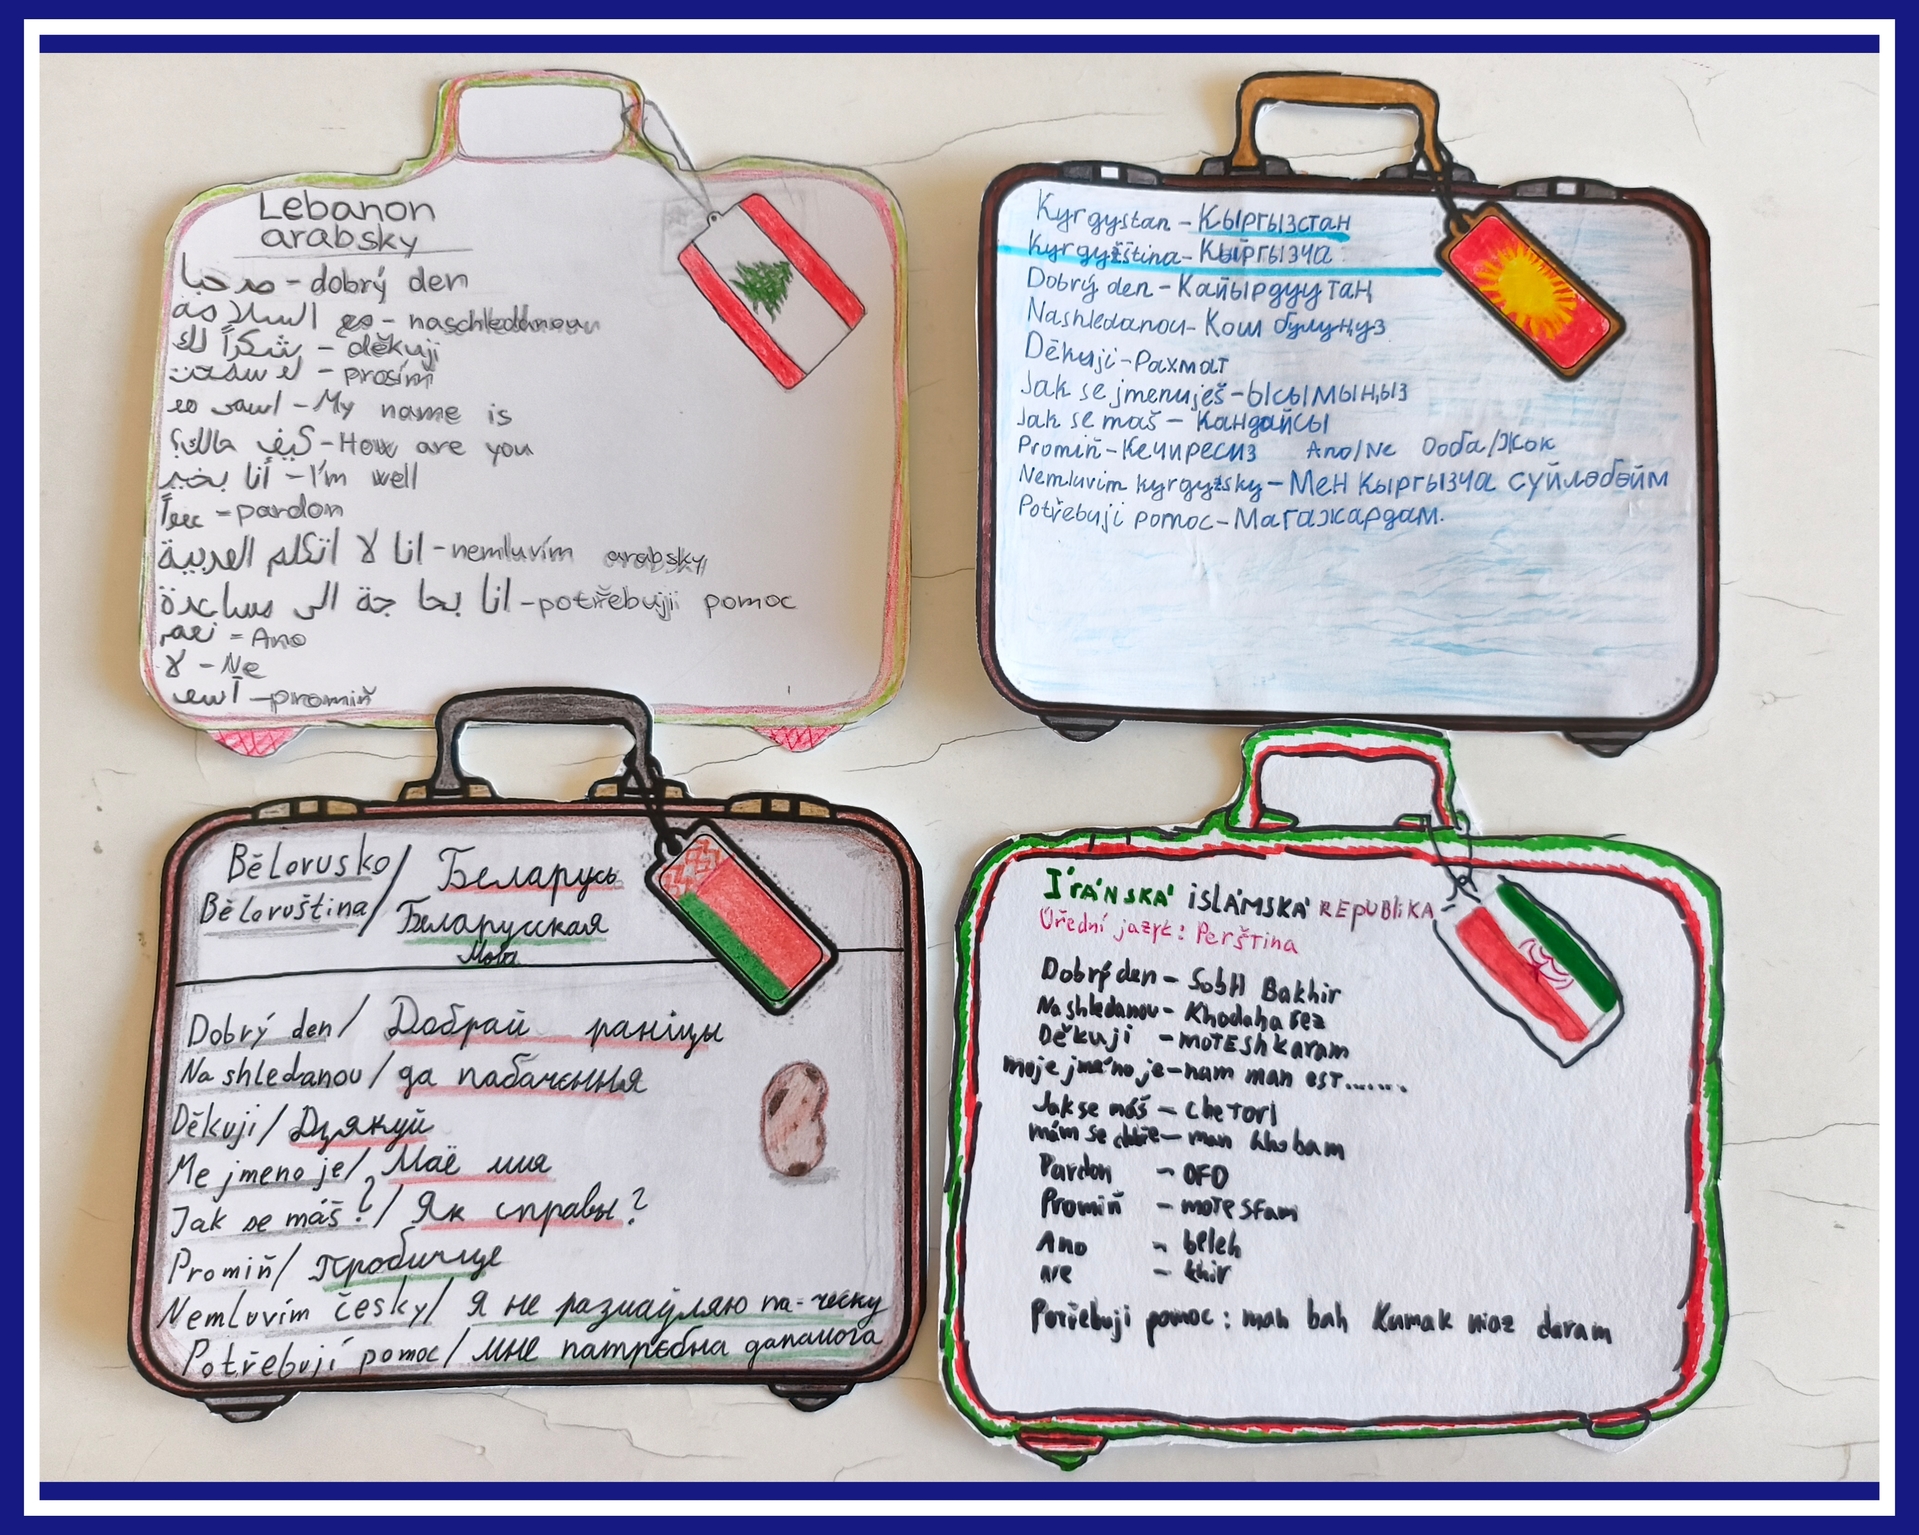 Lebanon
arabsky
مرحبا - dobrý den
مع السلامة - naschledanou
شكراً لك - děkuji
لو سمحت - prosím
اسمي هو - My name is
كيف حالك؟ - How are you
أنا بخير - I'm well
- pardon
انا لا اتكلم العربية - nemluvím arabsky
انا بحا جة الى مساعدة - potřebuji pomoc
نعم - Ano
لا - Ne
آسف - promiň
Kyrgystan - Кыргызстан
Kyrgyžština - Кыргызча
Dobrý den - Кайырдуу таң
Nashledanou - Кош булуңуз
Děkuji - Рахмат
Jak se jmenuješ - Ысымыңыз
Jak se maš - Кандайсы
Promiň - Кечиресиз Ano/Ne Ооба/Жок
Nemluvim kyrgyžsky - Мен Кыргызча сүйлөбөйм
Potřebuji pomoc - Магажардам.
Bělorusko / Беларусь
Běloruština / Беларусская
Мова
Dobrý den / Добрай раніцы
Na shledanou / да пабачення
Děkuji / Дзякуй
Me jmeno je / Маё имя
Jak se máš? / Як справы?
Promiň / Прабичце
Nemluvím česky / Я не размаўляю па-ческу
Potřebují pomoc / мне патрєбна дапамога
ÍRÁNSKÁ iSLÁMSKÁ REPUBLIKA
Úřední jazyk: Perština
Dobrý den - SobH Bakhir
Na shledanou - Khodaha fez
Děkuji - moTESHkaram
moje jméno je - nam man esT.......
Jak se máš - cheTori
mám se dobře - man khobam
Pardon - OFO
Promiň - moTESFam
Ano - beleh
ne - khir
Potřebuji pomoc: mah bah Kumak niaz daram